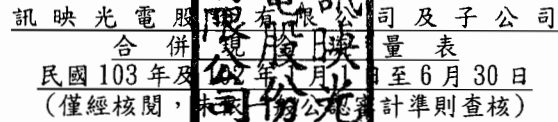 訊映光電股有限公司及子公司
合併現量表
民國 103 年及 102 年 月 日至 6 月 30 日
(僅經核閱，未依公認審計準則查核)